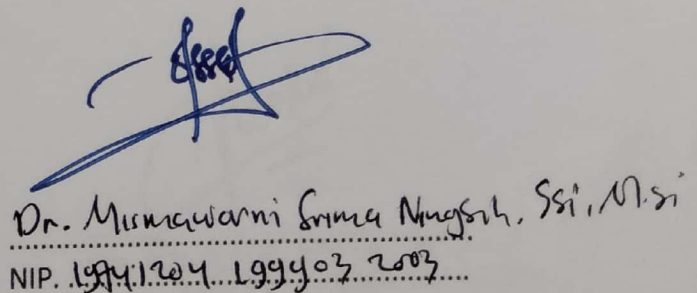 Dr. Mismawarni Srima Ningsih, Ssi, M.si
NIP. 19741204 199403 2003